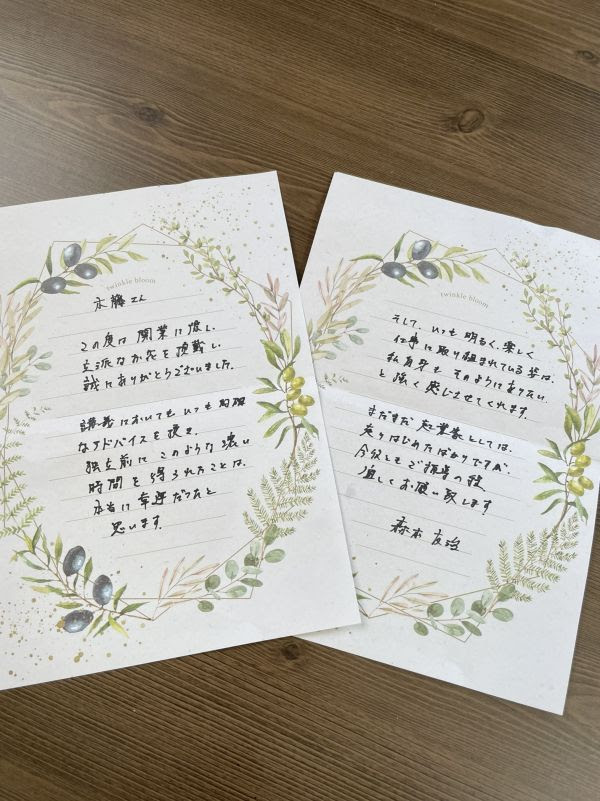 twinkle bloom
木藤さん
この度は開業に際し、
立派なお花を頂戴し、
誠にありがとうございました。
講義においてもいつも的確
なアドバイスを頂き、
独立前にこのような濃い
時間を得られたことは、
本当に幸運だったと
思います。
twinkle bloom
そして、いつも明るく、楽しく
仕事に取り組まれている姿は、
私自身もそのようにありたい
と強く感じさせてくれます。
まだまだ起業家としては、
走りはじめたばかりですが、
今後ともご指導の程
宜しくお願い致します
森本 友治